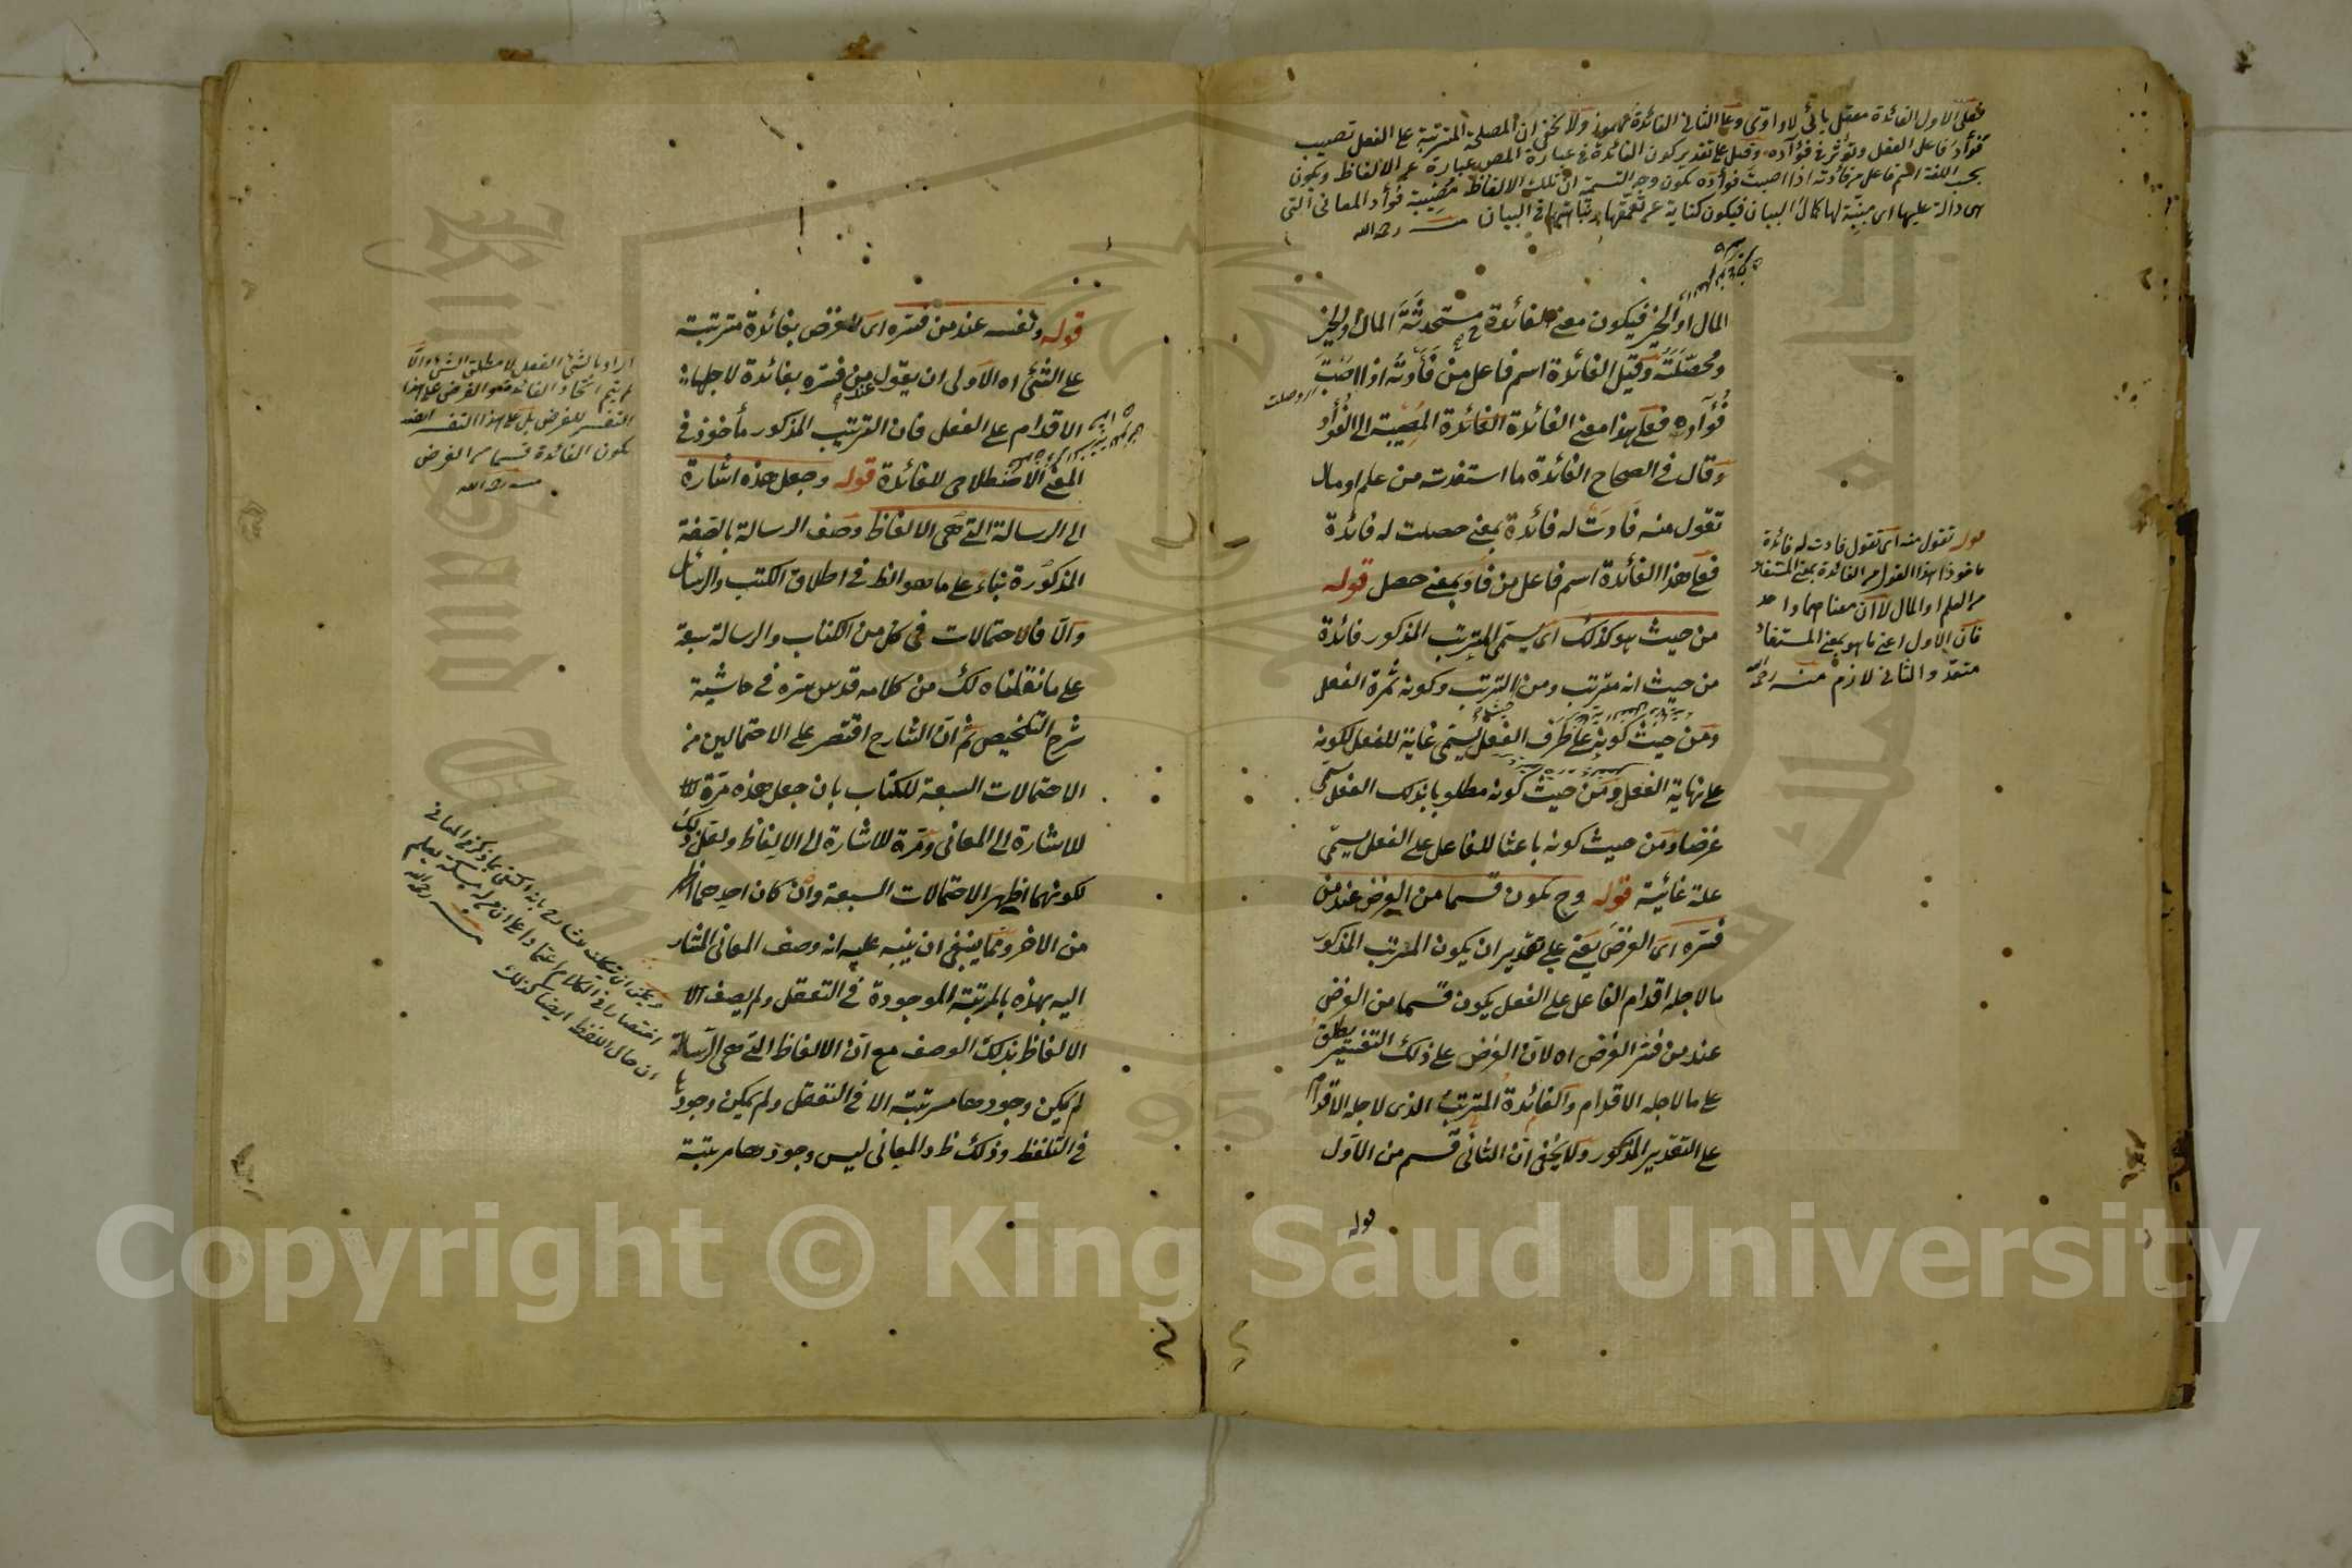 فعلى الاول الفائدة معتل يائى لا واوى وعلى الثانى الفائدة مهموز ولا يخفى ان المصلحة المترتبة على الفعل تصيب
فؤاد فاعل الفعل وتؤثر فى فؤاده وقيل على تقدير كون الفائدة فى عبارة المص عبارة عن الالفاظ ويكون
بحسب اللغة اسم فاعل من فأدته اذا اصبت فؤاده يكون وجه التسمية ان تلك الالفاظ مصيبة فؤاد المعانى التى
هى دالة عليها اى مبينة لها كمال البيان فيكون كناية عن تعمقها فى البيان منه رحمه الله
المال او الخير فيكون معنى الفائدة ح مستحدثة المال والخير
ومحصلته وقيل الفائدة اسم فاعل من فأدته اذا اصبت
فؤاده فعلى هذا معنى الفائدة الفائدة المصيبة الى الفؤاد
وقال فى الصحاح الفائدة ما استفدت من علم او مال
تقول منه فادت له فائدة بمعنى حصلت له فائدة
فعلى هذا الفائدة اسم فاعل من فاد بمعنى حصل قوله
من حيث هو كذلك اى يسمى المترتب المذكور فائدة
من حيث انه مترتب ومن الترتب وكونه ثمرة الفعل
ومن حيث كونه على طرف الفعل يسمى غاية للفعل لكونه
على نهاية الفعل ومن حيث كونه مطلوبا بذلك الفعل يسمى
غرضا ومن حيث كونه باعثا للفاعل على الفعل يسمى
علة غائية قوله وح يكون قسما من الغرض عند من
فسره اى الغرض يعنى على تقدير ان يكون المترتب المذكور
ما لاجله اقدام الفاعل على الفعل يكون قسما من الغرض
عند من فسر الغرض اه لان الغرض على ذلك التفسير يطلق
على ما لاجله الاقدام والفائدة المترتب الذى لاجله الاقدام
على التقدير المذكور ولا يخفى ان الثانى قسم من الاول
قوله
قوله تقول منه اى تقول فادت له فائدة
ماخوذا هذا القول من الفائدة بمعنى المستفاد
من العلم او المال لا ان معناهما واحد
فان الاول اعنى ما هو بمعنى المستفاد
متعد والثانى لازم منه رحمه الله
قوله ونفسه عند من فسره اى الغرض بفائدة مترتبة
على الشئ اه الاولى ان يقول عند من فسره بفائدة لاجلها
الاقدام على الفعل فان الترتب المذكور مأخوذ فى
المعنى الاصطلاحى للفائدة قوله وجعل هذه اشارة
الى الرسالة التى هى الالفاظ وصف الرسالة بالصفة
المذكورة بناء على ما هو الظ فى اطلاق الكتب والرسائل
والا فالاحتمالات فى كل من الكتاب والرسالة سبعة
على ما نقلناه لك من كلامه قدس سره فى حاشية
شرح التلخيص ثم ان الشارح اقتصر على الاحتمالين من
الاحتمالات السبعة للكتاب بان جعل هذه مرة
للاشارة الى المعانى ومرة للاشارة الى الالفاظ ولعل ذلك
لكونهما اظهر الاحتمالات السبعة وان كان احدهما اظهر
من الاخر ومما ينبغى ان ينبه عليه انه وصف المعانى المشار
اليه بهذه بالمرتبة الموجودة فى التعقل ولم يصف
الالفاظ بذلك الوصف مع ان الالفاظ التى هى الرسالة
لم يكن وجودها مرتبة الا فى التعقل ولم يكن وجودها
فى التلفظ وذلك ظ والمعانى ليس وجودها مرتبة
اراد بالشئ الفعل لا مطلق الشئ والا
لم يتم اتحاد الفائدة مع الغرض على هذا
التفسير للغرض بل على هذا التفسير ايضا
يكون الفائدة قسما من الغرض
منه رحمه الله
ان حال اللفظ ايضا كذلك
منه رحمه الله
Copyright © King Saud University